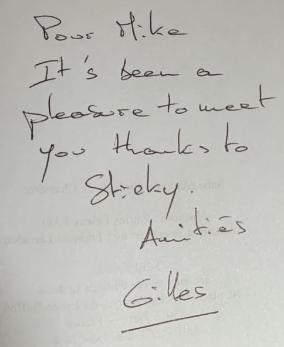 Pour Mike
It's been a
pleasure to meet
you thanks to
Sticky.
Amitiés
Gilles